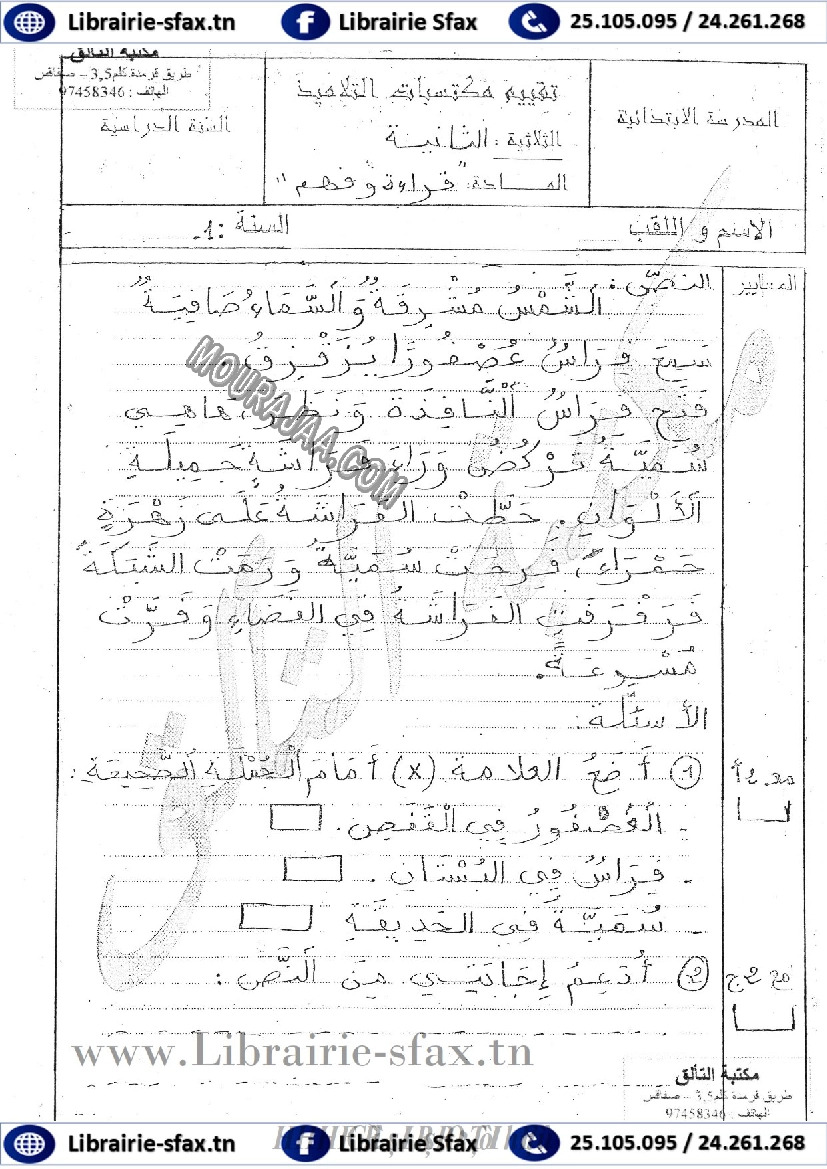 Librairie-sfax.tn Librairie Sfax 25.105.095 / 24.261.268
مكتبة التألق
طريق قرمدة كلم 3,5 – صفاقس
الهاتف : 97458346
المدرسة الابتدائية
تقييم مكتسبات التلاميذ
الثلاثية : الثانية
المادة: "قراءة و فهم"
السنة الدراسية
الاسم و اللقب
السنة : 1-
المعايير
النصّ :
الشَّمْسُ مُشْرِقَةٌ وَالسَّمَاءُ صَافِيَةٌ
سَمِعَ فِرَاسُ عُصْفُورًا يُزَقْزِقُ.
فَتَحَ فِرَاسُ النَّافِذَةَ وَنَظَرَ، هَاهِي
سُمَيَّةُ تَرْكُضُ وَرَاءَ فَرَاشَةٍ جَمِيلَةِ
الأَلْوَانِ. حَطَّتْ الفَرَاشَةُ عَلَى زَهْرَةٍ
حَمْرَاءَ، فَرِحَتْ سُمَيَّةُ وَرَمَتْ الشَّبَكَةَ
فَرَفْرَفَتْ الفَرَاشَةُ فِي الفَضَاءِ وَفَرَّتْ
مُسْرِعَة.
الأسئلة :
مع 2 أ
1 أَضَعُ العلامة (x) أَمَامَ الْجُمْلَةِ الصَّحِيحَةِ :
- الْعُصْفُورُ فِي الْقَفَصِ.
- فِرَاسُ فِي البُسْتَانِ.
- سُمَيَّةُ فِي الحَدِيقَةِ
مع 2 ج
2 أُدَعِّمُ إِجَابَتِي مِنَ النَّصِّ :
MOURAJAA.COM
www.Librairie-sfax.tn
مكتبة التألق
طريق قرمدة كلم 3,5 – صفاقس
الهاتف : 97458346
Librairie-sfax.tn Librairie Sfax 25.105.095 / 24.261.268